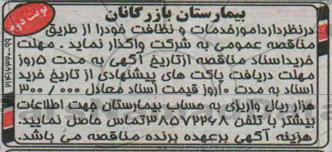 نوبت دوم
بیمارستان بازرگانان
درنظردارد امورخدمات و نظافت خودرا از طریق
مناقصه عمومی به شرکت واگذار نماید . مهلت
خریداسناد مناقصه ازتاریخ آگهی به مدت ۵روز
مهلت دریافت پاکت های پیشنهادی از تاریخ خرید
اسناد به مدت ۱۰روز قیمت اسناد معادل ۳۰۰/۰۰۰
هزار ریال واریزی به حساب بیمارستان جهت اطلاعات
بیشتر با تلفن ۳۸۵۷۲۲۶۸تماس حاصل نمایید.
هزینه آگهی برعهده برنده مناقصه می باشد.